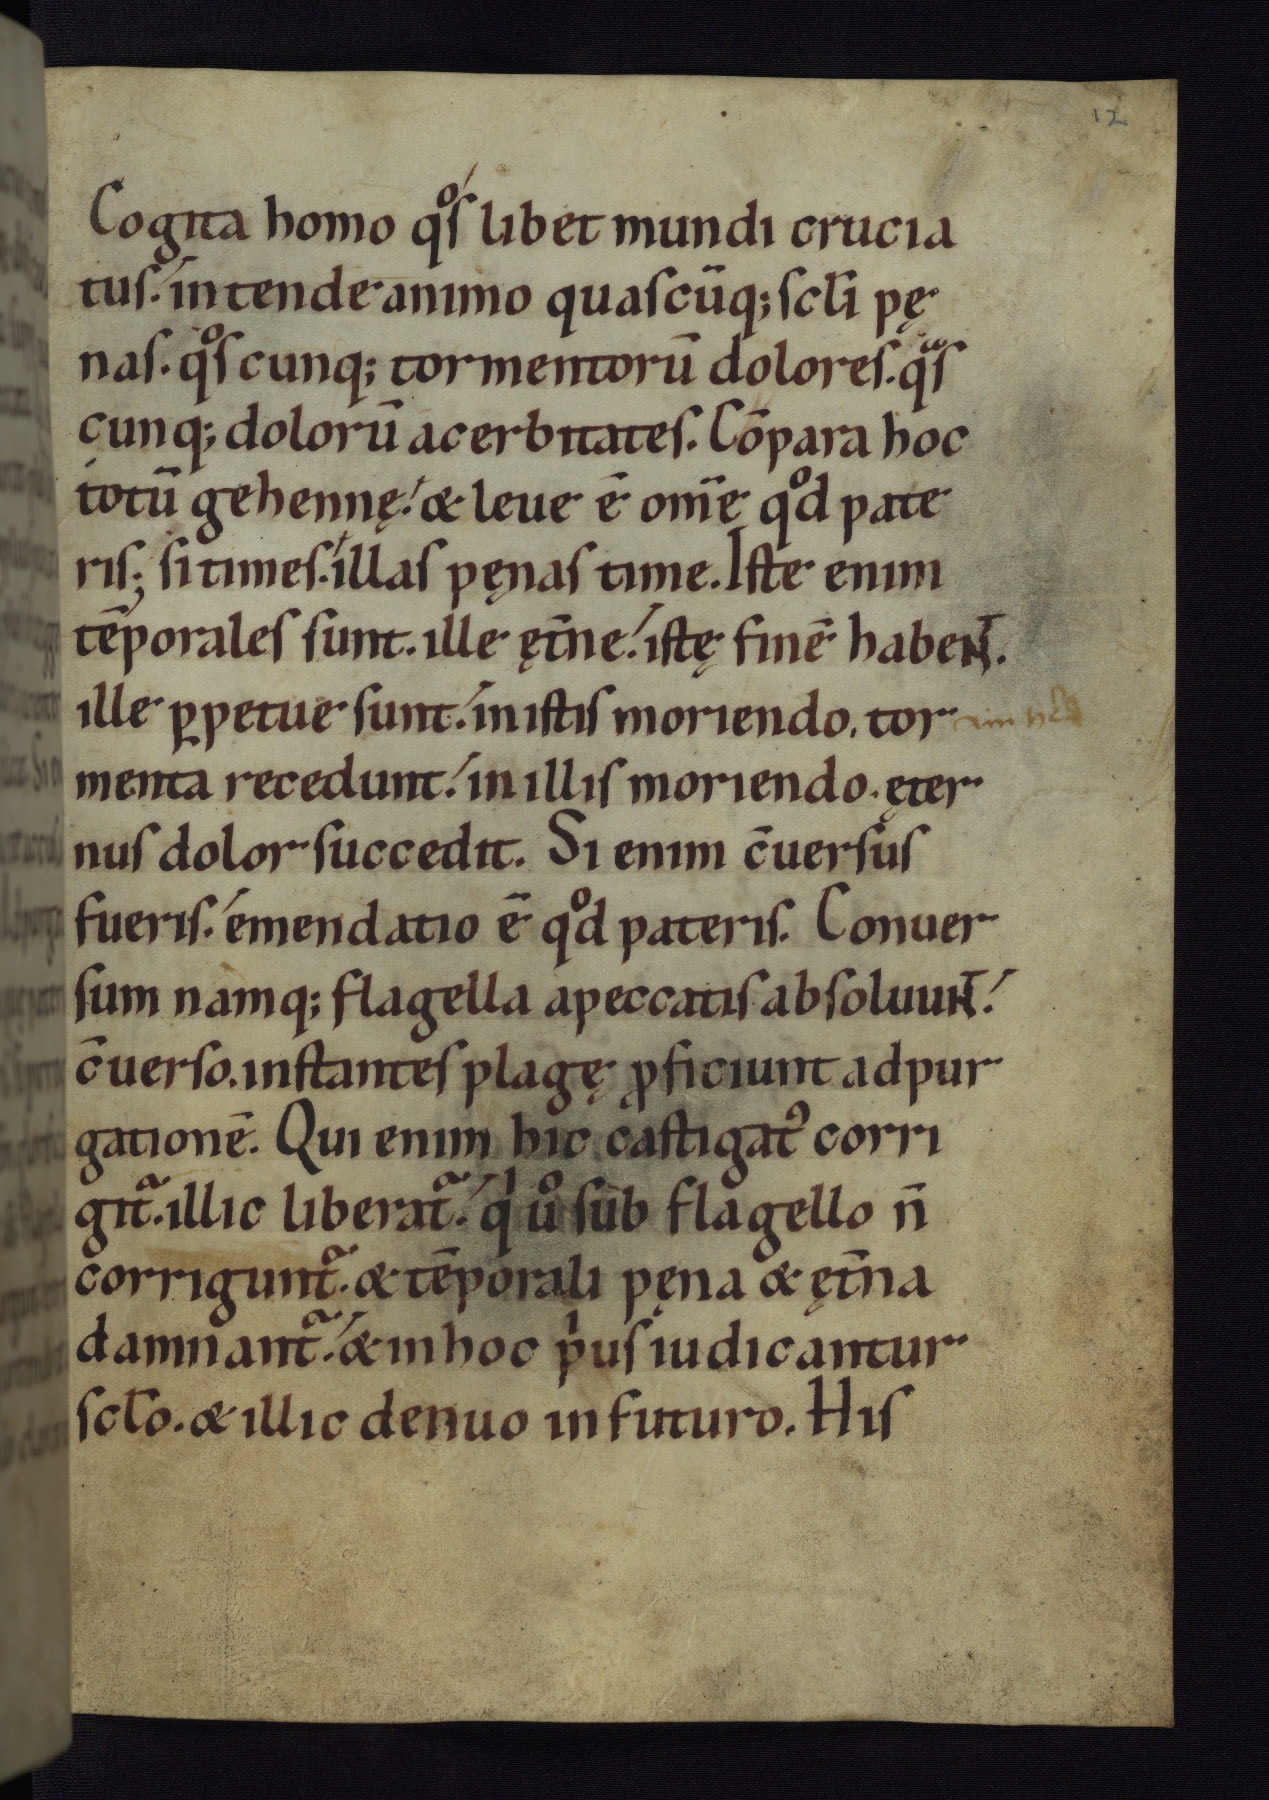 12
Cogita homo qͦſ libet mundi crucia
tuſ.᷄ intende animo quaſcūq; ſcl̄i pę
naſ. qͦſcunq; tormentorū doloreſ. qᷓſ
cunq; dolorū acerbitateſ. Cōpara hoc
totū gehennę.᷄ & leue ē om̄e qͦd pate
riſ; ſi timeſ. illaſ pęnaſ time. Iſte enim
tēporaleſ ſunt. ille ęt̄ne.᷄ iſtę finē habeNT.
ille ꝑpetue ſunt.᷄ in iſtiſ moriendo. tor
menta recedunt.᷄ in illiſ moriendo. ęter
nuſ dolor ſuccedit. Si enim c̄uerſuſ
fueriſ.᷄ emendatio ē qͦd pateriſ. Conuer
ſum namq; flagella apeccatiſ abſoluuNT.᷄
c̄uerſo. inſtanteſ plagę ꝓficiunt adpur
gationē. Qui enim hic caſtigat᷒ corri
git᷑. illic liberat᷑.᷄ qͥ uͦ ſub flagello n̄
corrigunt᷑. & tēporali pęna & ęt̄na
damnant᷑.᷄ & inhoc pͥuſ iudicantur
ſcl̄o. & illic denuo in futuro. Hiſ